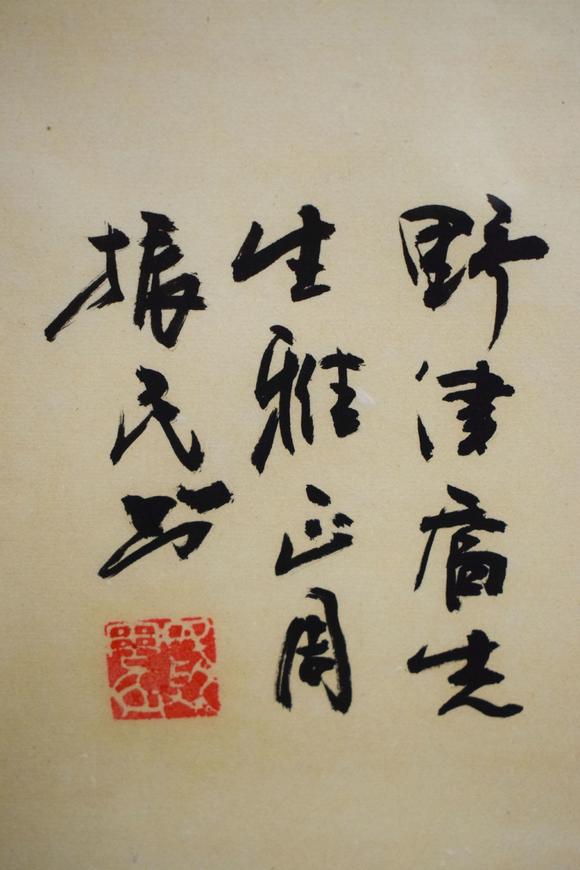 野津喬先
生雅正周
振民书